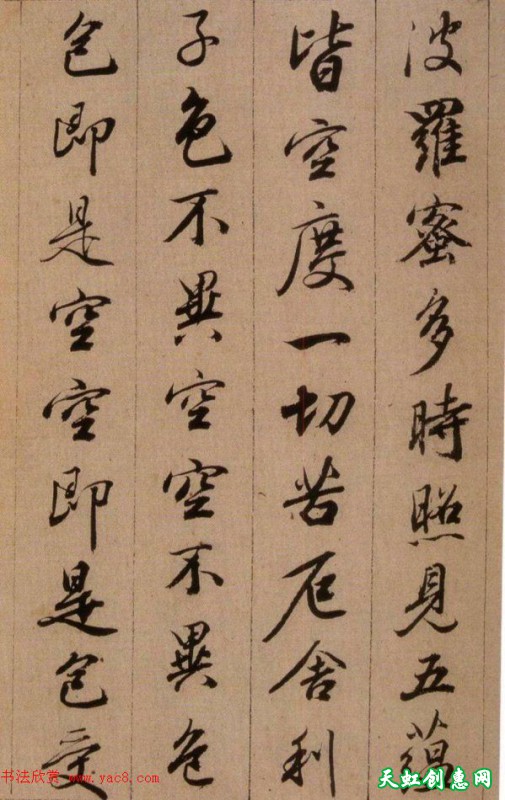 波羅蜜多時照見五蘊
皆空度一切苦厄舍利
子色不異空空不異色
色即是空空即是色受
书法欣赏 www.yac8.com
天虹创意网